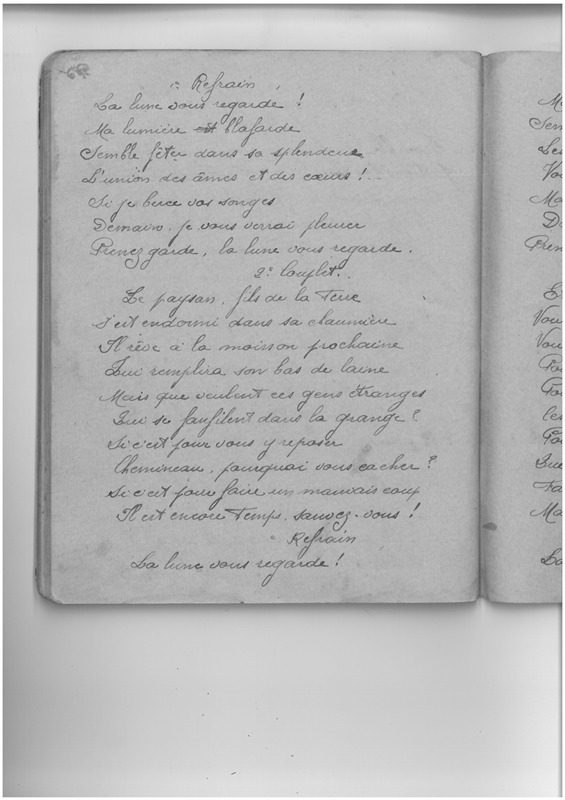 Refrain
La lune vous regarde !
Ma lumière est blafarde
Semble fêter dans sa splendeur
L'union des âmes et des cœurs !
Si je berce vos songes
Demain, je vous verrai pleurer
Prenez garde, la lune vous regarde.
2e Couplet.
Le paysan, fils de la Terre
S'est endormi dans sa chaumière
Il rêve à la moisson prochaine
Qui remplira son bas de laine
Mais que veulent ces gens étranges
Qui se faufilent dans la grange ?
Si c'est pour vous y reposer
Chemineau, pourquoi vous cacher ?
Si c'est pour faire un mauvais coup
Il est encore Temps, sauvez-vous !
Refrain
La lune vous regarde !
Ma
Sem
Les
Vou
Ma
De
Pren
Vou
Vou
Pou
Pou
les
Pou
Que
Fa
Ma
La